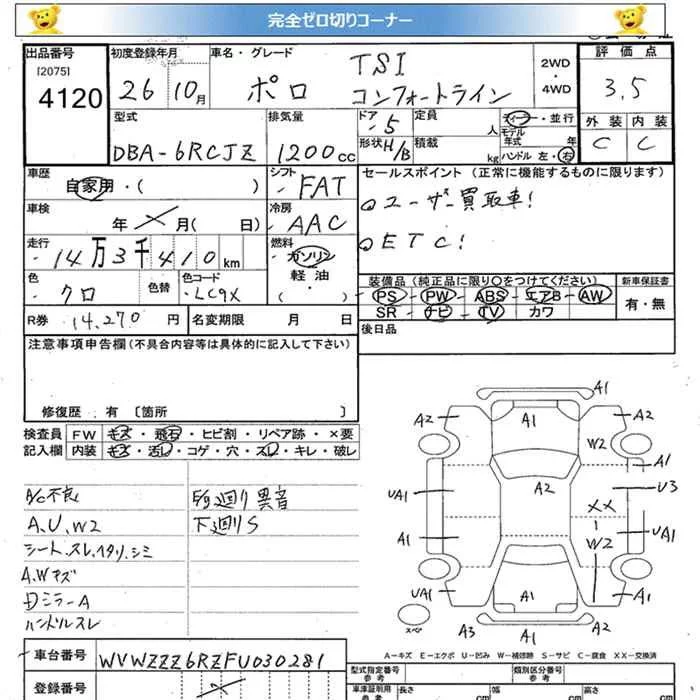 完全ゼロ切りコーナー
出品番号 初度登録年月 車名・グレード 評価点
[2075] 4120
26 10月 ポロ TSI コンフォートライン 2WD・4WD 3.5
型式 排気量 ドア 5 定員 人 ディーラー・並行 外装 内装
DBA-6RCJZ 1200cc 形状 H/B 積載 kg モデル年式 年 ハンドル 左・右 C C
車歴 自家用・( ) シフト FAT セールスポイント (正常に機能するものに限ります)
車検 年 月( 日) 冷房 AAC
ユーザー買取車!
ETC!
走行 14万3千410km 燃料 ガソリン 軽油・( )
色 クロ 色替 色コード LC9X
装備品 (純正品に限り○をつけてください) 新車保証書
PS・PW・ABS・エアB・AW 有・無
SR・ナビ・TV・カワ
R券 14,270円 名変期限 月 日 後日品
注意事項申告欄(不具合内容等は具体的に記入して下さい)
修復歴 有 〔箇所 〕
検査員 FW キズ・飛石・ヒビ割・リペア跡・×要
記入欄 内装 キズ・汚し・コゲ・穴・スレ・キレ・破レ
A/C不良
A、U、W2
シート、スレ、ヘタリ、シミ
A.Wキズ
ミラーA
ハンドルスレ
廻り異音
下廻りS
A1
A2 A1 A2
W2
A1
A2
UA1 U3
XX
A1 W2 UA1
UA1 A1 A1
スペア A3 A2
A−キズ E−エクボ U−凹み W−補修跡 S−サビ C−腐食 XX−交換済
車台番号 WVWZZZ6RZFU030281
登録番号
型式指定番号 参考 類別区分番号 参考
車庫証明用 参考 長さ cm 幅 cm 高さ cm